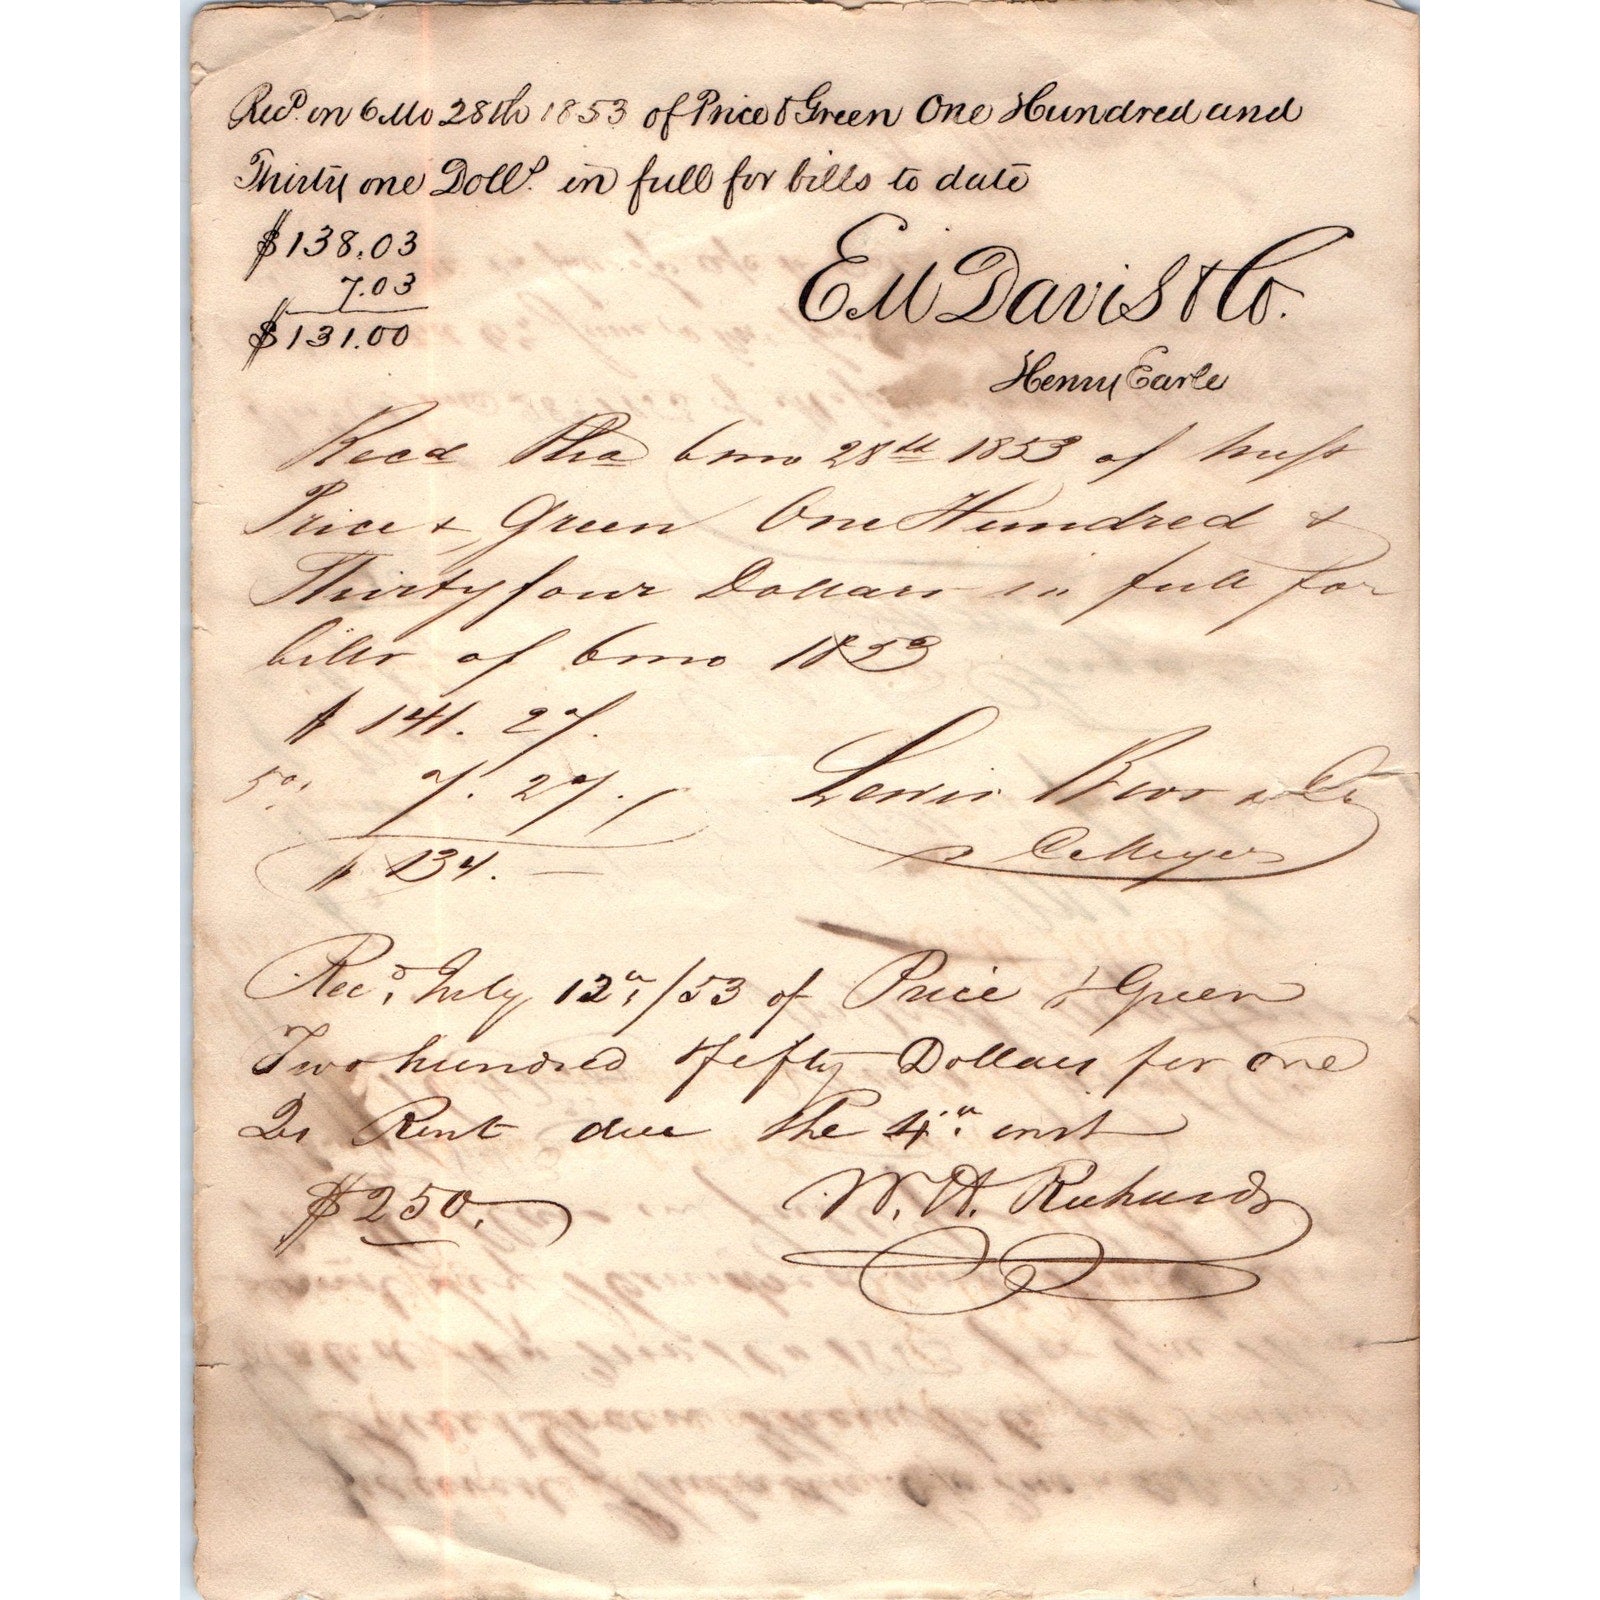 Recd. on 6 Mo 28th 1853 of Price & Green One Hundred and
Thirty one Dolls. in full for bills to date
$138.03
7.03
$131.00
E M Davis & Co.
Henry Earle
Recd Pha 6mo 28th 1853 of Mess
Price & Green One Hundred &
Thirty four Dollars in full for
bills of 6mo 1853
$ 141. 27.
5% 7. 27.
$ 134. —
Lewis Bros & Co
C Meyer
Recd. July 12", /53 of Price & Green
Two hundred & fifty Dollars for one
Qr Rent due the 4". inst
$250.
W. H. Richards